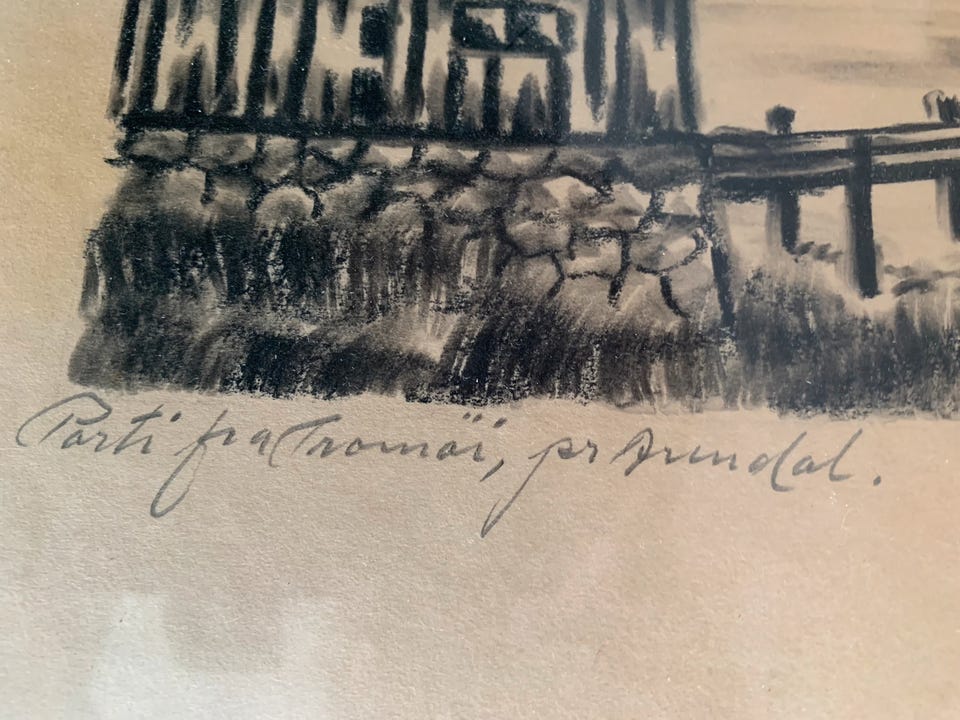 Parti fra Tromöi, pr Arendal.